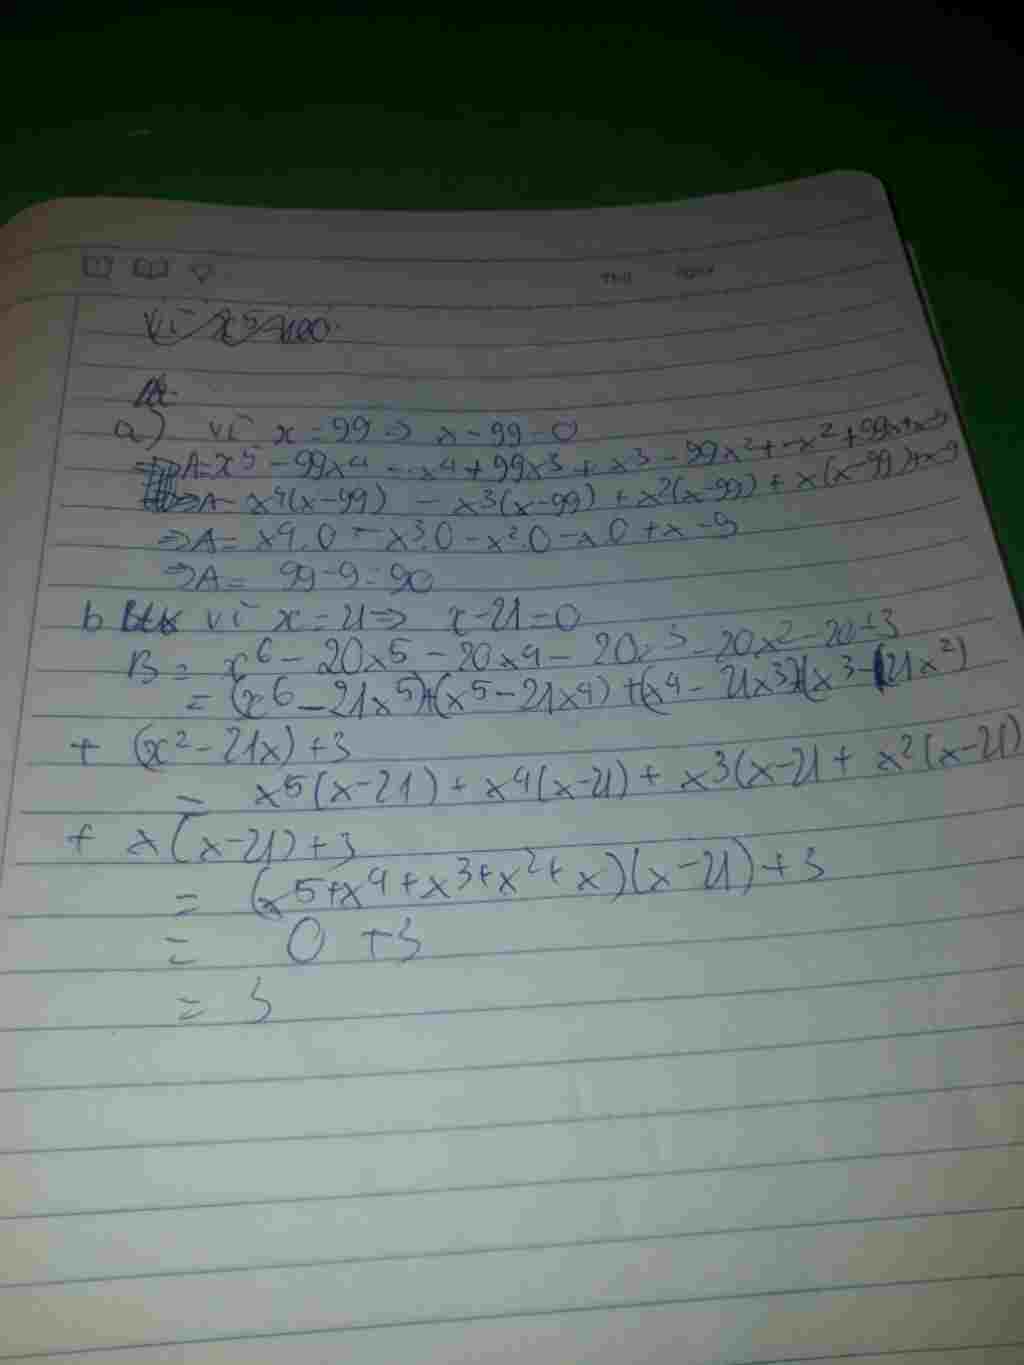 a) vì x = 99 => x - 99 = 0
=> A = x^5 - 99x^4 - x^4 + 99x^3 + x^3 - 99x^2 + -x^2 + 99x + x - 9
=> A = x^4(x-99) - x^3(x-99) + x^2(x-99) + x(x-99) + x-9
=> A = x^4.0 - x^3.0 - x^2.0 - x0 + x - 9
=> A = 99 - 9 = 90
b vì x = 21 => x - 21 = 0
B = x^6 - 20x^5 - 20x^4 - 20x^3 - 20x^2 - 20 + 3
= (x^6 - 21x^5) + (x^5 - 21x^4) + (x^4 - 21x^3) + (x^3 - (21x^2)
+ (x^2 - 21x) + 3
= x^5(x-21) + x^4(x-21) + x^3(x-21 + x^2(x-21)
+ x(x-21) + 3
= (x^5 + x^4 + x^3 + x^2 + x)(x-21) + 3
= 0 + 3
= 3